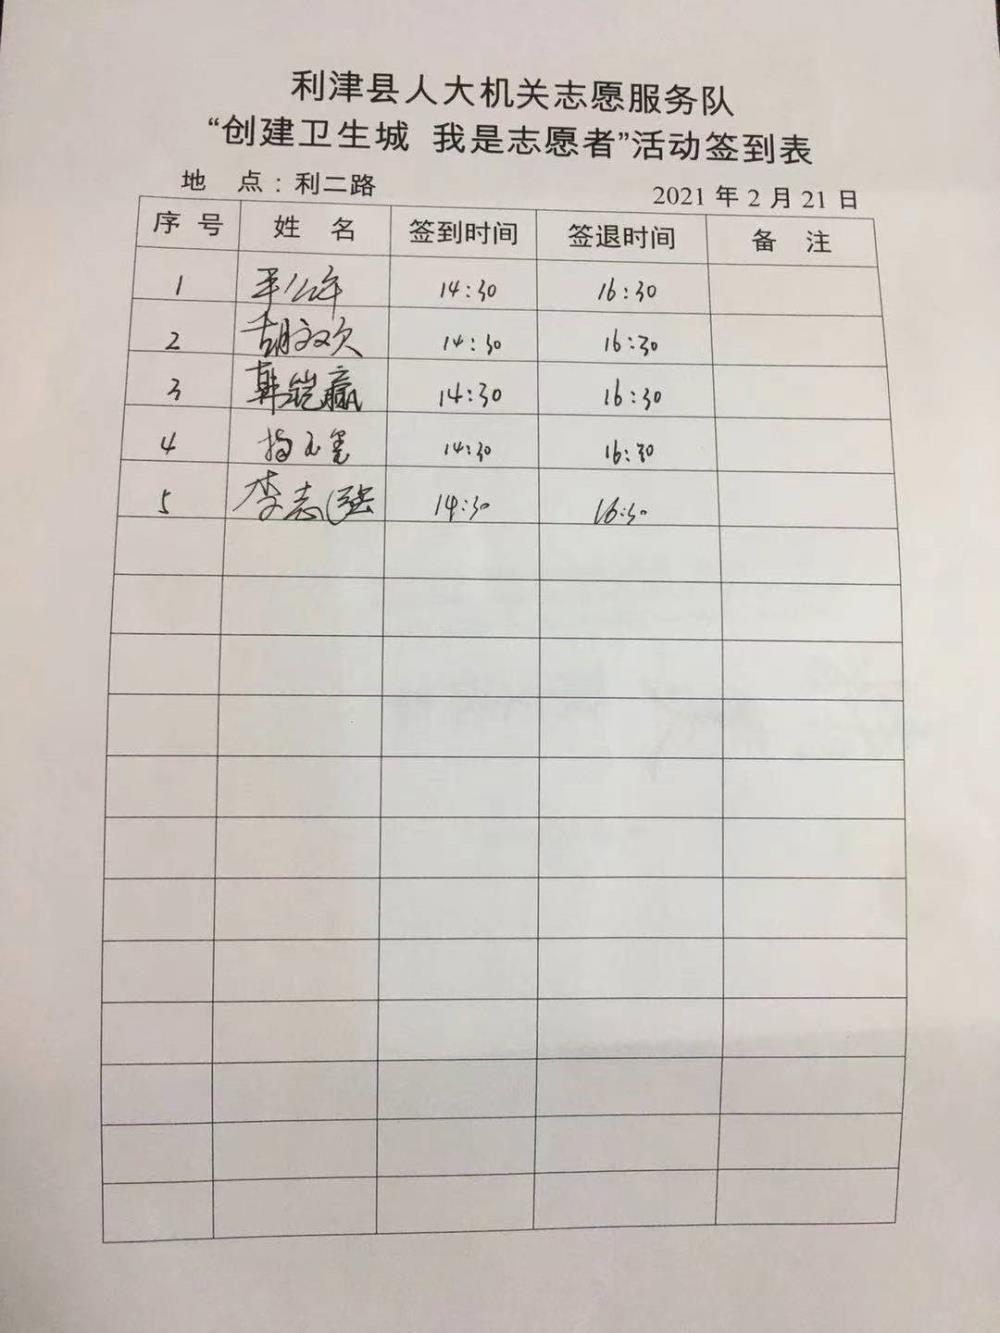 利津县人大机关志愿服务队
“创建卫生城 我是志愿者”活动签到表
地 点：利二路 2021 年 2 月 21 日
序 号 姓 名 签到时间 签退时间 备 注
1 14:30 16:30
2 胡文欢 14:30 16:30
3 韩铠赢 14:30 16:30
4 14:30 16:30
5 李志强 14:30 16:30